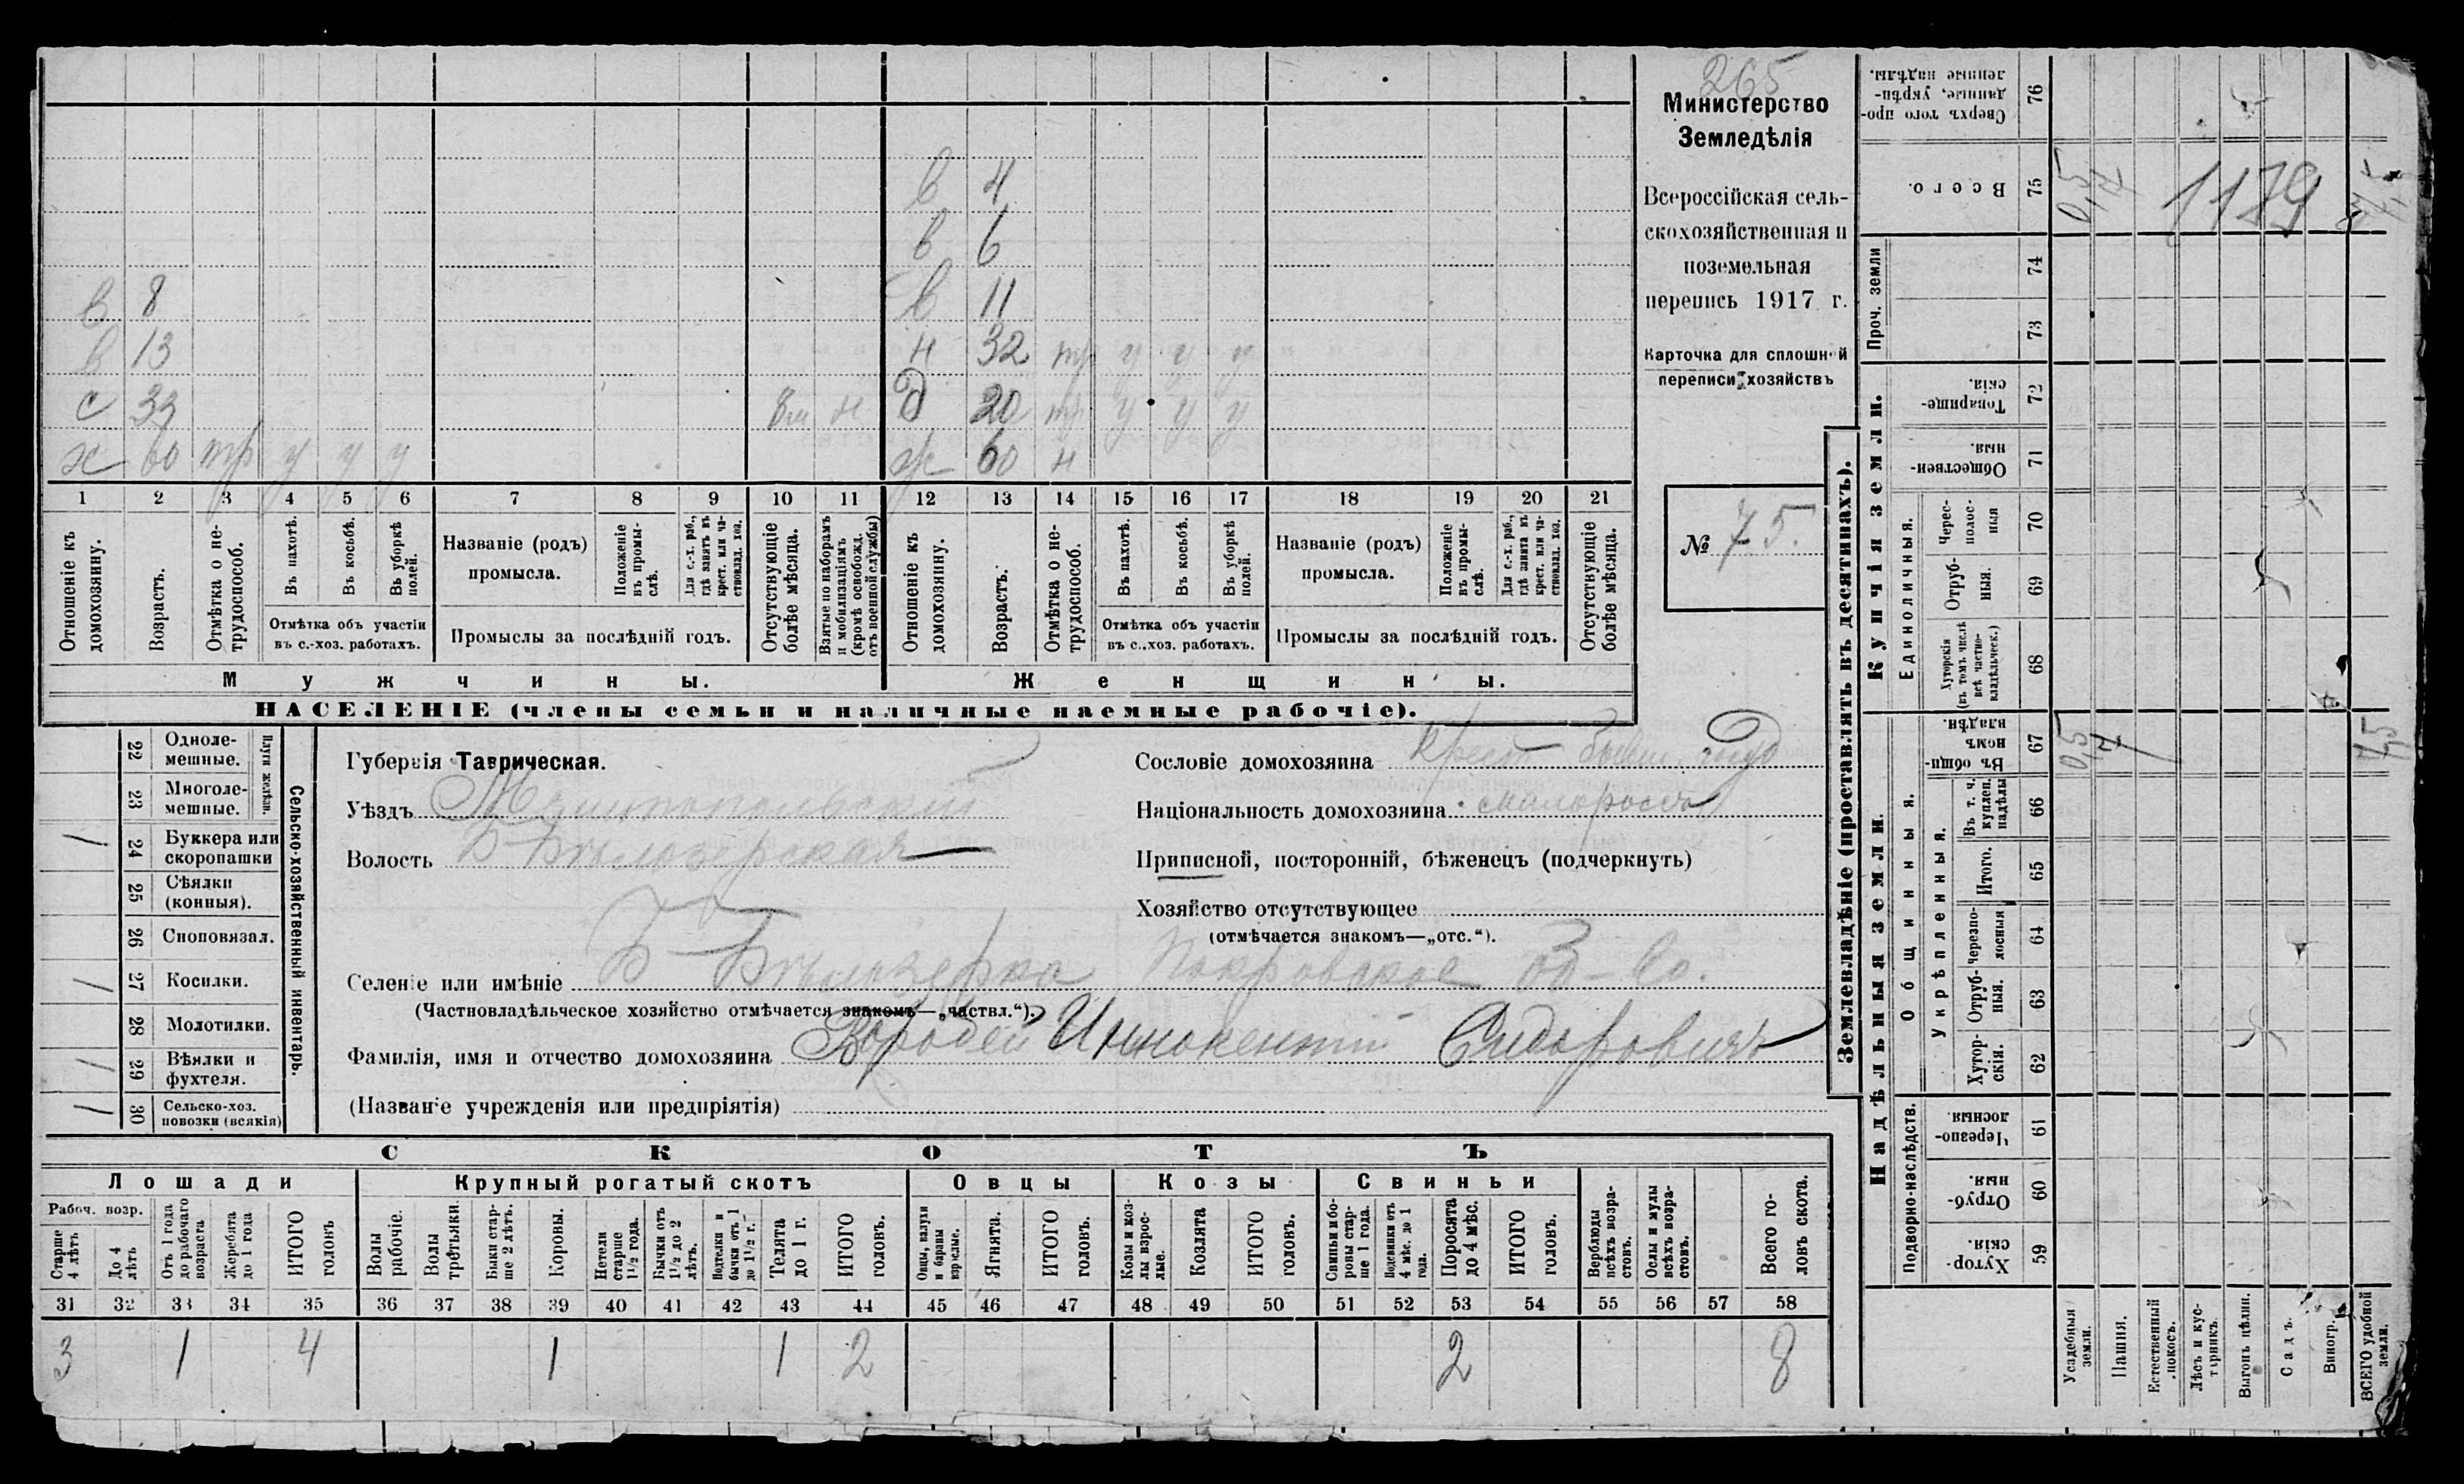 265
Министерство
Земледѣлія
Всероссійская сель-
скохозяйственная и
поземельная
перепись 1917 г.
Карточка для сплошной
переписи хозяйствъ
№ 75.
в 4
в 6
в 8 в 11
в 13 н 32 тр у у у
с 33 8м н д 20 тр у у у
х 60 тр у у у ж 60 н
1 2 3 4 5 6 7 8 9 10 11 12 13 14 15 16 17 18 19 20 21
Отношеніе къ домохозяину.
Возрастъ.
Отмѣтка о не-трудоспособ.
Въ пахотѣ.
Въ косьбѣ.
Въ уборкѣ полей.
Отмѣтка объ участіи
въ с.-хоз. работахъ.
Названіе (родъ)
промысла.
Положеніе въ промы-слѣ.
Для с.-х. раб., гдѣ занятъ въ крест. или ча-стновлад. хоз.
Промыслы за послѣдній годъ.
Отсутствующіе болѣе мѣсяца.
Взятые по наборамъ и мобилизаціямъ (кромѣ освобожд. отъ военной службы)
Отношеніе къ домохозяину.
Возрастъ.
Отмѣтка о не-трудоспособ.
Въ пахотѣ.
Въ косьбѣ.
Въ уборкѣ полей.
Отмѣтка объ участіи
въ с.-хоз. работахъ.
Названіе (родъ)
промысла.
Положеніе въ промы-слѣ.
Для с.-х. раб., гдѣ занята въ крест. или ча-стновлад. хоз.
Промыслы за послѣдній годъ.
Отсутствующіе болѣе мѣсяца.
Мужчины. Женщины.
НАСЕЛЕНІЕ (члены семьи и наличные наемные рабочіе).
Сельско-хозяйственный инвентарь.
Плуги желѣзн.
22 Одноле-мешные.
23 Многоле-мешные.
1 24 Буккера или скоропашки
25 Сѣялки (конныя).
26 Сноповязал.
1 27 Косилки.
28 Молотилки.
1 29 Вѣялки и фухтеля.
1 30 Сельско-хоз. повозки (всякія)
Губернія Таврическая.
Уѣздъ Мелитопольскій
Волость Б-Бѣлозерская
Сословіе домохозяина крест бывш госуд
Національность домохозяина малороссъ
Приписной, посторонній, бѣженецъ (подчеркнуть)
Хозяйство отсутствующее
(отмѣчается знакомъ—„отс.“).
Селеніе или имѣніе Б-Бѣлозерка Покровское Об-во.
(Частновладѣльческое хозяйство отмѣчается знакомъ—„частвл.“).
Фамилія, имя и отчество домохозяина Воробей Иннокентій Сидоровичъ
(Названіе учрежденія или предпріятія)
СКОТЪ
Лошади Крупный рогатый скотъ Овцы Козы Свиньи
Рабоч. возр.
Старше 4 лѣтъ
До 4 лѣтъ
Отъ 1 года до рабочаго возраста
Жеребята до 1 года
ИТОГО головъ
Волы рабочіе.
Волы третьяки.
Быки стар-ше 2 лѣтъ.
Коровы.
Нетели старше 1½ года.
Бычки отъ 1½ до 2 лѣтъ.
Подтелки и бычки отъ 1 до 1½ г.
Телята до 1 г.
ИТОГО головъ.
Овцы, валухи и бараны взрослые.
Ягнята.
ИТОГО головъ.
Козы и коз-лы взрос-лые.
Козлята
ИТОГО головъ.
Свиньи и бо-ровы стар-ше 1 года.
Подсвинки отъ 4 мѣс. до 1 года.
Поросята до 4 мѣс.
ИТОГО головъ.
Верблюды всѣхъ возра-стовъ.
Ослы и мулы всѣхъ возра-стовъ.
Всего го-ловъ скота.
31 32 33 34 35 36 37 38 39 40 41 42 43 44 45 46 47 48 49 50 51 52 53 54 55 56 57 58
3 1 4 1 1 2 2 8
Землевладѣніе (проставлять въ десятинахъ).
76 Сверхъ того про-данные, укрѣп-ленные надѣлы.
75 Всего. 0,5 1179
Проч. земли
74
73
Купчія земли.
72 Товарище-скія.
71 Обществен-ныя
Единоличныя.
70 Черес-полос-ныя
69 Отруб-ныя.
68 Хуторскія (въ томъ числѣ всѣ частно-владѣльческ.)
Надѣльныя земли.
Общинныя.
67 Въ общин-номъ владѣн. 0,5
Укрѣпленныя.
66 Въ т. ч. куплен. надѣлы
65 Итого.
64 Черезпо-лосныя
63 Отруб-ныя.
62 Хутор-скія.
Подворно-наслѣдств.
61 Черезпо-лосныя.
60 Отруб-ныя.
59 Хутор-скія.
Усадебныя земли.
Пашня.
Естественный покосъ.
Лѣсъ и кус-тарникъ.
Выгонъ цѣлин.
Садъ.
Виногр.
ВСЕГО удобной земли.